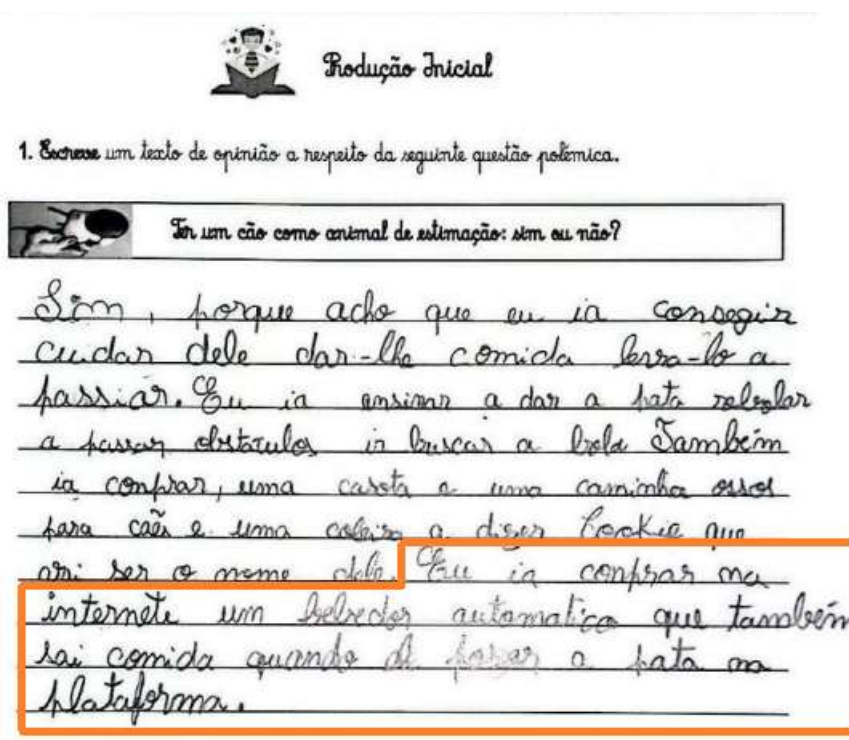 Produção Inicial
1. Escreve um texto de opinião a respeito da seguinte questão polémica.
Ter um cão como animal de estimação: sim ou não?
Sim, porque acho que eu ia conseguir
cuidar dele dar-lhe comida leva-lo a
passiar. Eu ia ensinar a dar a pata rebolar
a passar obstaculos ir buscar a bola Também
ia conprar, uma casota e uma caminha ossos
para cães e uma coleira a dizer Cookie que
vai ser o nome dele. Eu ia conprar na
internete um bebedor automatico que também
sai comida quando a pata na
plataforma.